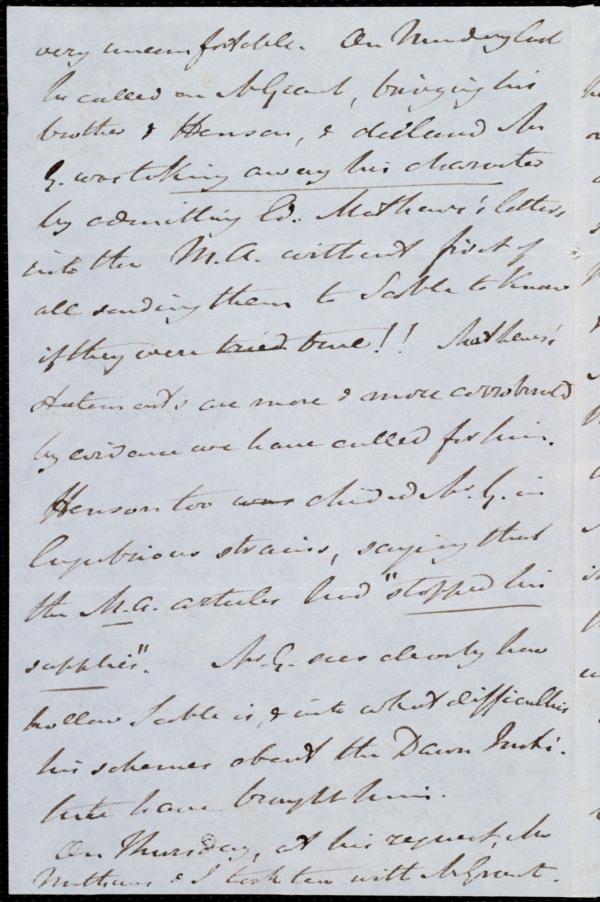 very uncomfortable. On Monday last
he called on Mr Grant, bringing his
brother & Henson, & declared Mr
G. was taking away his character
by admitting Ed. Mathews's letters
into the M.A. without first of
all sending them to Scoble to know
if they were tried true!! Mathews'
statements are more & more corroborated
by evidence we have culled for him.
Henson too was chided Mr. G. in
lugubrious strains, saying that
the M.A. articles had "stopped his
supplies". Mr. G. sees clearly how
hollow Scoble is, & into what difficulties
his schemes about the Dawn Insti-
tute have brought him.
On Thursday, at his request, Mr
Mathews & I took tea with Mr Grant.